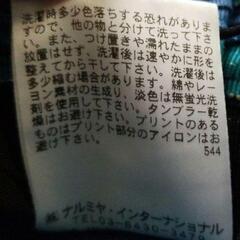 洗濯時多少色落ちする恐れがありま
すので、他の物と分けて洗って下さ
い。また、つけ置きや濡れたままの
放置はせず、洗濯後は速やかに形を
整えてから干して下さい。洗濯後は
多少縮む場合があります。綿やレー
ヨン素材の生成り、淡色は無蛍光洗
剤を使用して下さい。タンブラー乾
燥はお避け下さい。プリントのある
ものはプリント部分のアイロンはお
避け下さい。
544
㈱ナルミヤ・インターナショナル